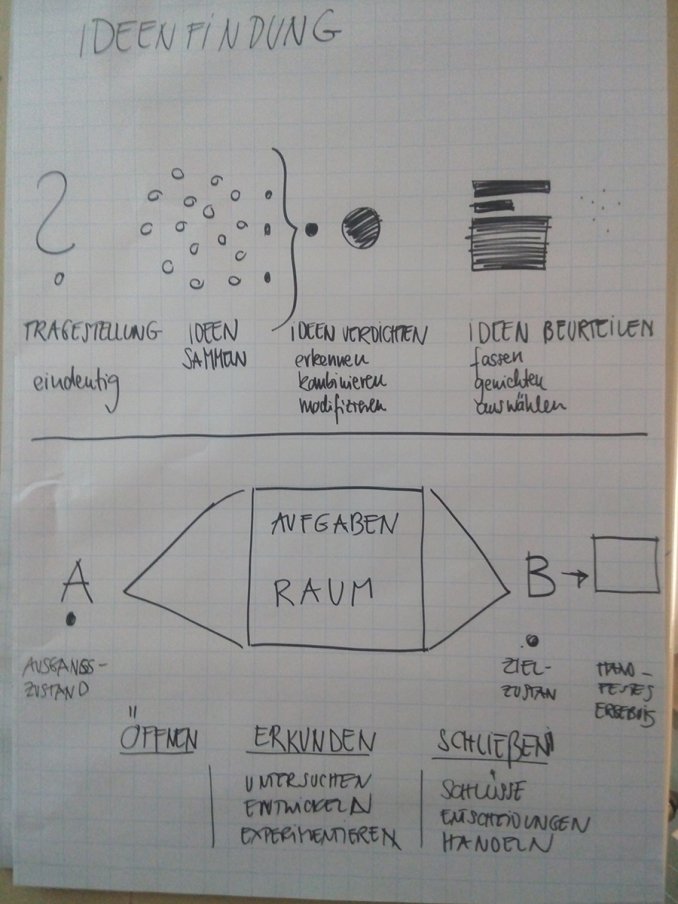 IDEENFINDUNG
FRAGESTELLUNG
eindeutig
IDEEN
SAMMELN
IDEEN VERDICHTEN
erkennen
kombinieren
modifizieren
IDEEN BEURTEILEN
fassen
gewichten
auswählen
AUFGABEN
RAUM
A
B
AUSGANGS-
ZUSTAND
ZIEL-
ZUSTAN
HAND-
FESTES
ERGEBNIS
ÖFFNEN
ERKUNDEN
UNTERSUCHEN
ENTWICKELN
EXPERIMENTIEREN
SCHLIEßEN
SCHLÜSSE
ENTSCHEIDUNGEN
HANDELN